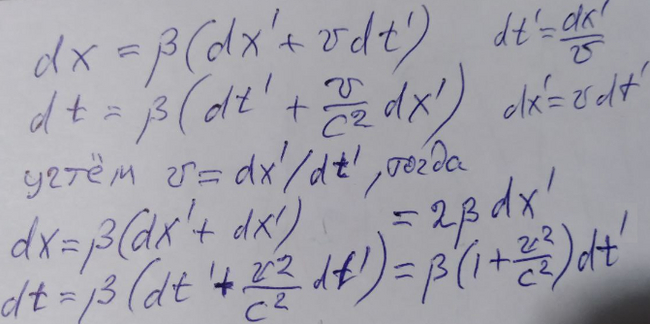 dx = β(dx' + v dt')    dt' = dx'/v
dt = β(dt' + v/c² dx')    dx' = v dt'
учтём v = dx'/dt', тогда
dx = β(dx' + dx') = 2β dx'
dt = β(dt' + v²/c² dt') = β(1 + v²/c²)dt'